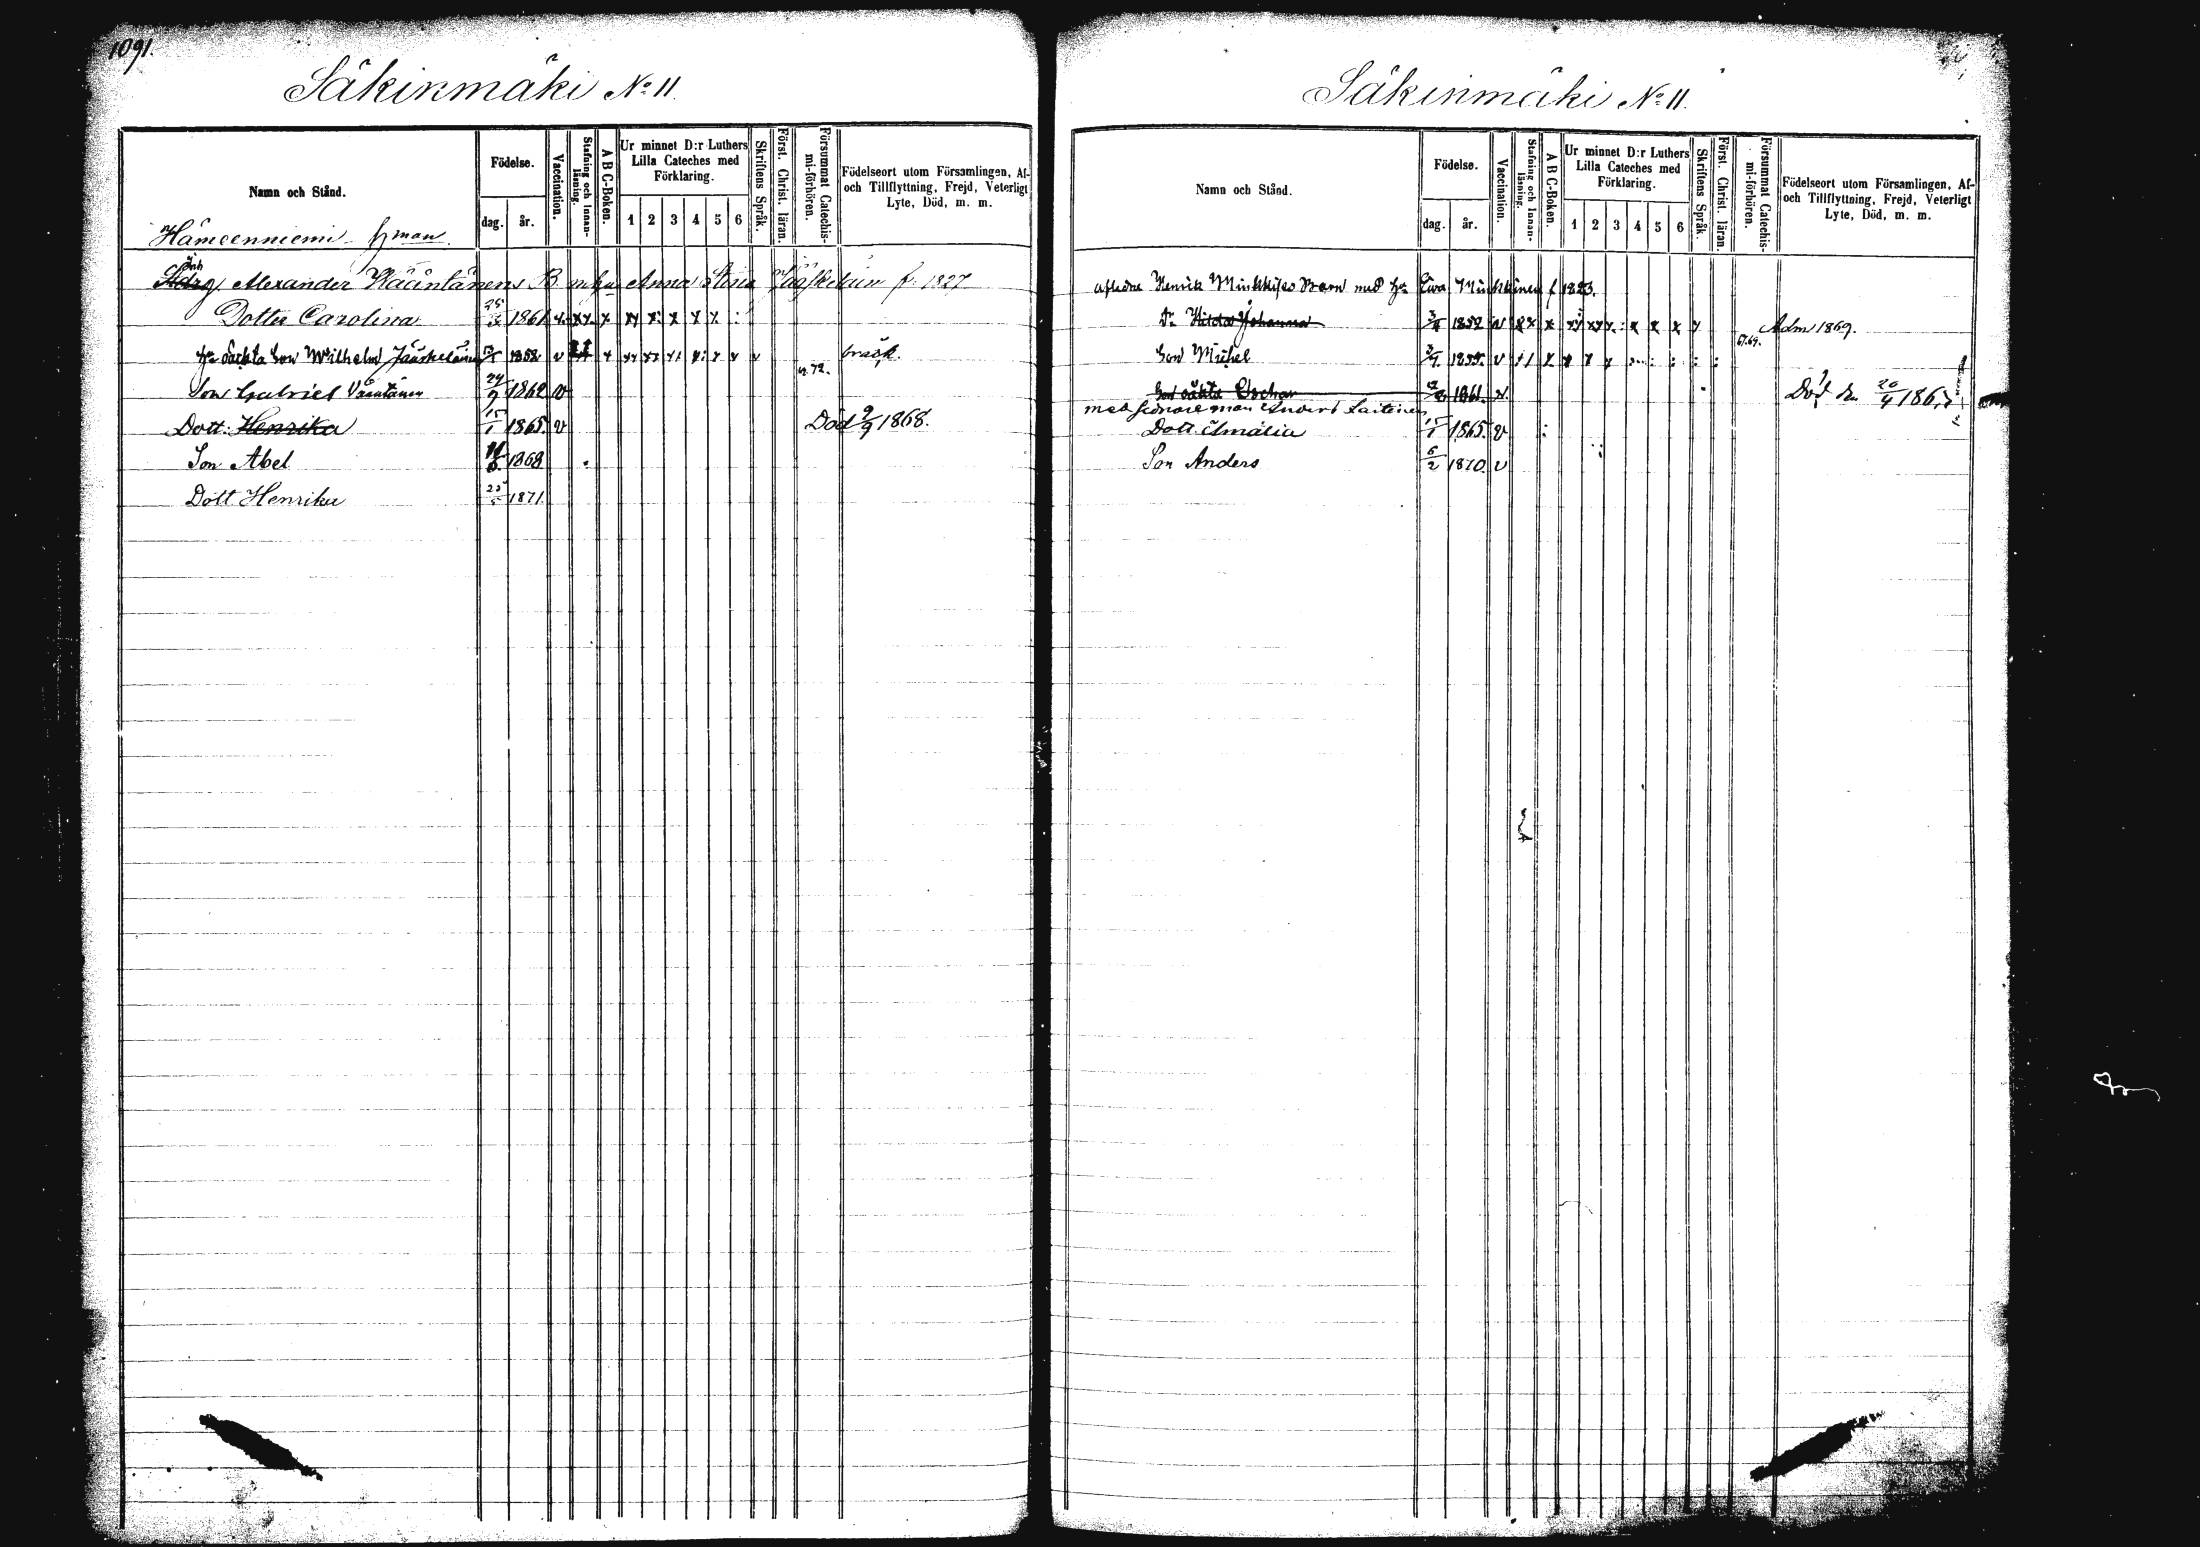 1091.
Säkinmäki No 11.
Namn och Stånd.
Födelse.
dag. år.
Vaccination.
Stafning och Innan-läsning.
A B C-Boken.
Ur minnet D:r Luthers Lilla Cateches med Förklaring.
1 2 3 4 5 6
Skriftens Språk.
Först. Christ. läran.
Försummat Catechis-mi-förhören.
Födelseort utom Församlingen, Af- och Tillflyttning, Frejd, Veterligt Lyte, Död, m. m.
Hämeenniemi
Alexander Wääntänens B. m hu Anna Stina Jääskeläin f. 1827
Dotter Carolina 1861 v.
hs oäckta Son Wilhelm Jääskeläinen 1858 v
Son Gabriel Väntänen 24/7 1862 v
72.
Dott: Henrika 15/1 1865. v Död 9/9 1868.
Son Abel 1868
Dott Henrika 1871.
Säkinmäki No 11.
Namn och Stånd.
Födelse.
dag. år.
Vaccination.
Stafning och Innan-läsning.
A B C-Boken.
Ur minnet D:r Luthers Lilla Cateches med Förklaring.
1 2 3 4 5 6
Skriftens Språk.
Först. Christ. läran.
Försummat Catechis-mi-förhören.
Födelseort utom Församlingen, Af- och Tillflyttning, Frejd, Veterligt Lyte, Död, m. m.
afledne Henrik Minkkises Barn med hu Ewa Minkkinen f 1823.
Dr Hilda Johanna 1852 v Adm 1869.
Son Michel 1855. v 67.69.
Son oäkta Oschar 1861. v. Död den 20/4 186
med sednare man Anders Laitinen
Dott. Amalia 15/1 1865. v
Son Anders 5/2 1870. v